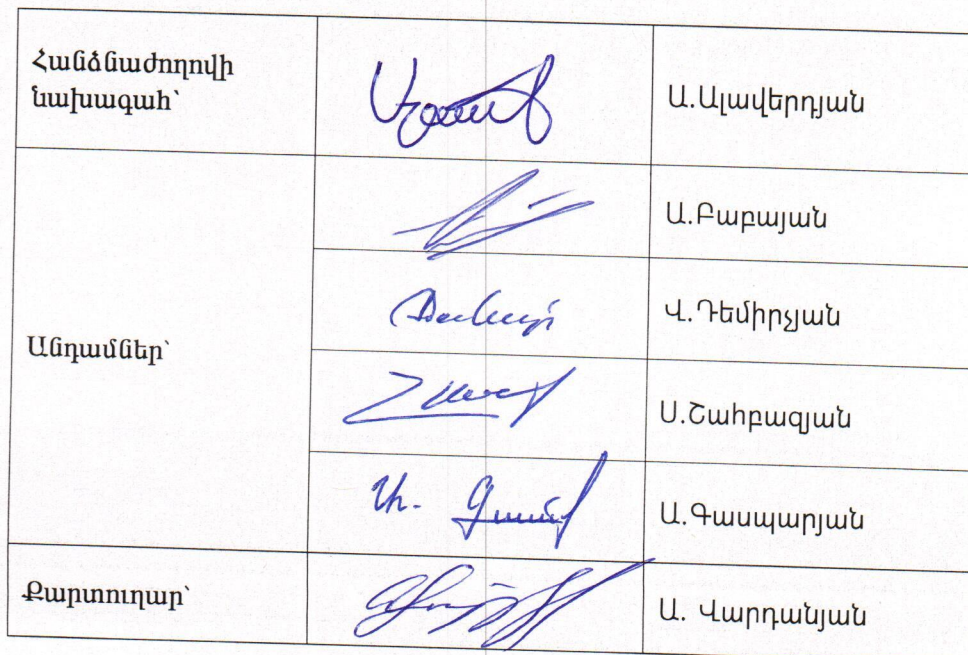 Հանձնաժողովի
նախագահ՝
Ա.Ալավերդյան
Անդամներ՝
Ա.Բաբայան
Վ.Դեմիրչյան
Ս.Շահբազյան
Ա.Գասպարյան
Քարտուղար՝
Ա. Վարդանյան